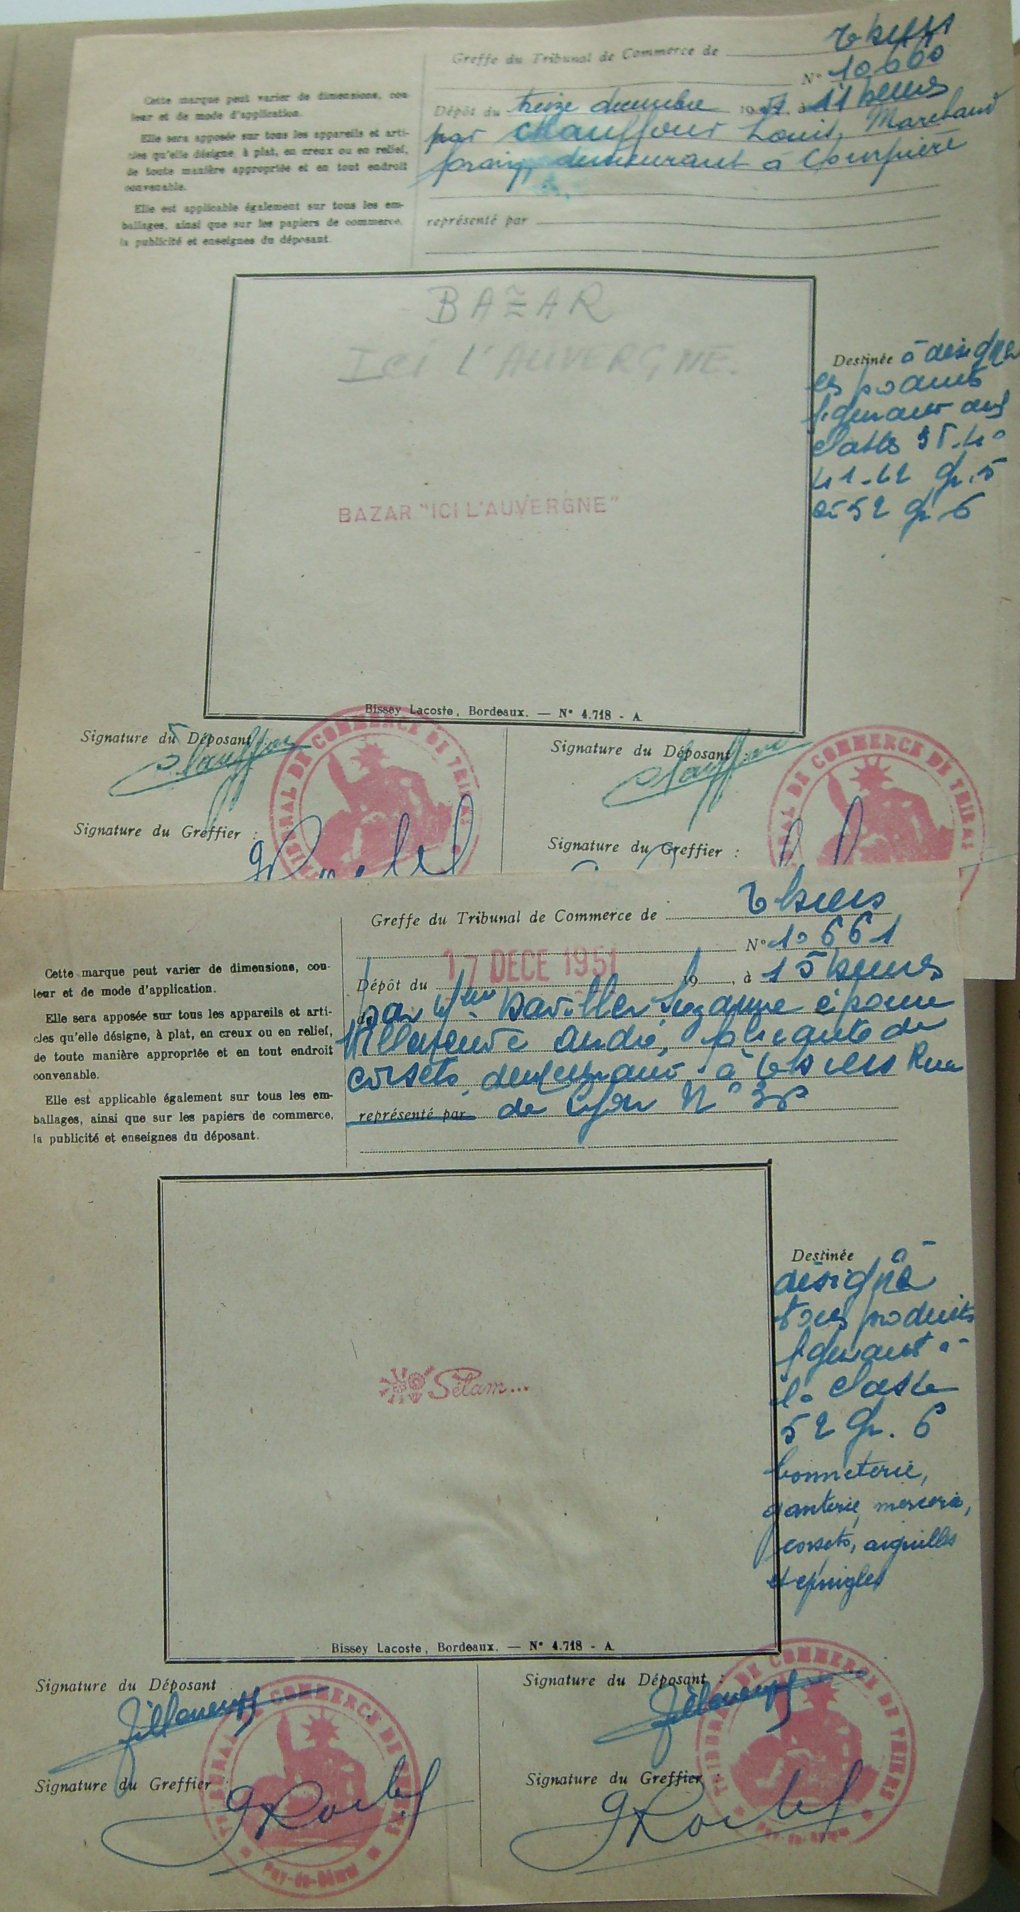 Greffe du Tribunal de Commerce de Thiers
N° 10660
Cette marque peut varier de dimensions, cou-
leur et de mode d'application.
Elle sera apposée sur tous les appareils et arti-
cles qu'elle désigne, à plat, en creux ou en relief,
de toute manière appropriée et en tout endroit
convenable.
Elle est applicable également sur tous les em-
ballages, ainsi que sur les papiers de commerce,
la publicité et enseignes du déposant.
Dépôt du treize decembre 19 51 à 11 heures
par Chauffour Louis, Marchand
forain, demeurant à Courpière
représenté par
BAZAR
ICI L'AUVERGNE.
BAZAR "ICI L'AUVERGNE"
Destinée à désigner
les produits
figurant aux
classes
41-42 gr. 5
et 52 gr 6
Bissey Lacoste, Bordeaux. — N° 4.718 - A
Signature du Déposant
Chauffour
Signature du Déposant :
Chauffour
Signature du Greffier :
Signature du Greffier :
TRIBUNAL DE COMMERCE DE THIERS
TRIBUNAL DE COMMERCE DE THIERS
Greffe du Tribunal de Commerce de Thiers
N° 10661
Cette marque peut varier de dimensions, cou-
leur et de mode d'application.
Elle sera apposée sur tous les appareils et arti-
cles qu'elle désigne, à plat, en creux ou en relief,
de toute manière appropriée et en tout endroit
convenable.
Elle est applicable également sur tous les em-
ballages, ainsi que sur les papiers de commerce,
la publicité et enseignes du déposant.
Dépôt du 17 DECE 1951 19 , à 15 heures
par Suzanne épouse
André, fabricante de
corsets demeurant à Thiers Rue
représenté par de Lyon N°
Sélam...
Destinée à
désigner
tous produits
figurant à
la classe
52 gr. 6
bonneterie,
ganterie, mercerie,
corsets, aiguilles
et épingles
Bissey Lacoste, Bordeaux. — N° 4.718 - A
Signature du Déposant
Signature du Déposant :
Signature du Greffier
Signature du Greffier
TRIBUNAL DE COMMERCE DE THIERS
Puy-de-Dôme
TRIBUNAL DE COMMERCE DE THIERS
Puy-de-Dôme